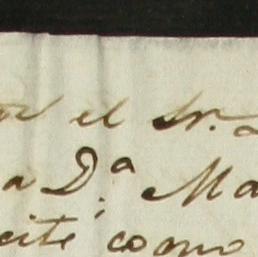 el Sr.
a D.ª Ma
cité como